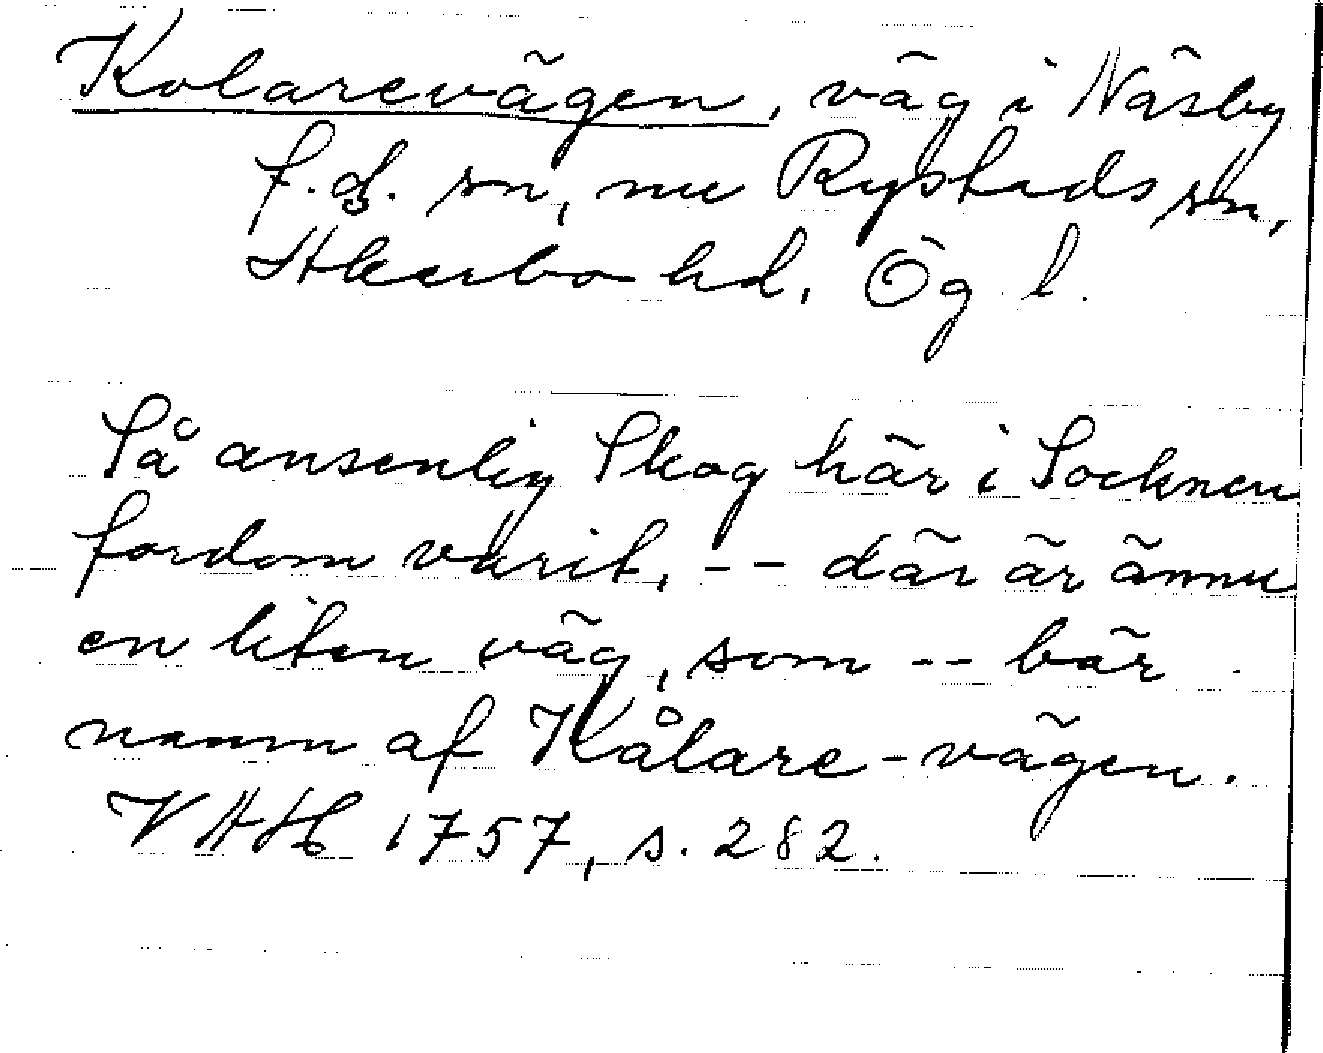 Kolarevägen, väg i Näsby
f.d. sn, nu Rystads sn,
Akerbo hd, Ög l.
Så ansenlig Skog här i Socknen
fordom varit, -- där är ännu
en liten väg, som -- bär
namn af Kålare-vägen.
VAH 1757, s. 282.